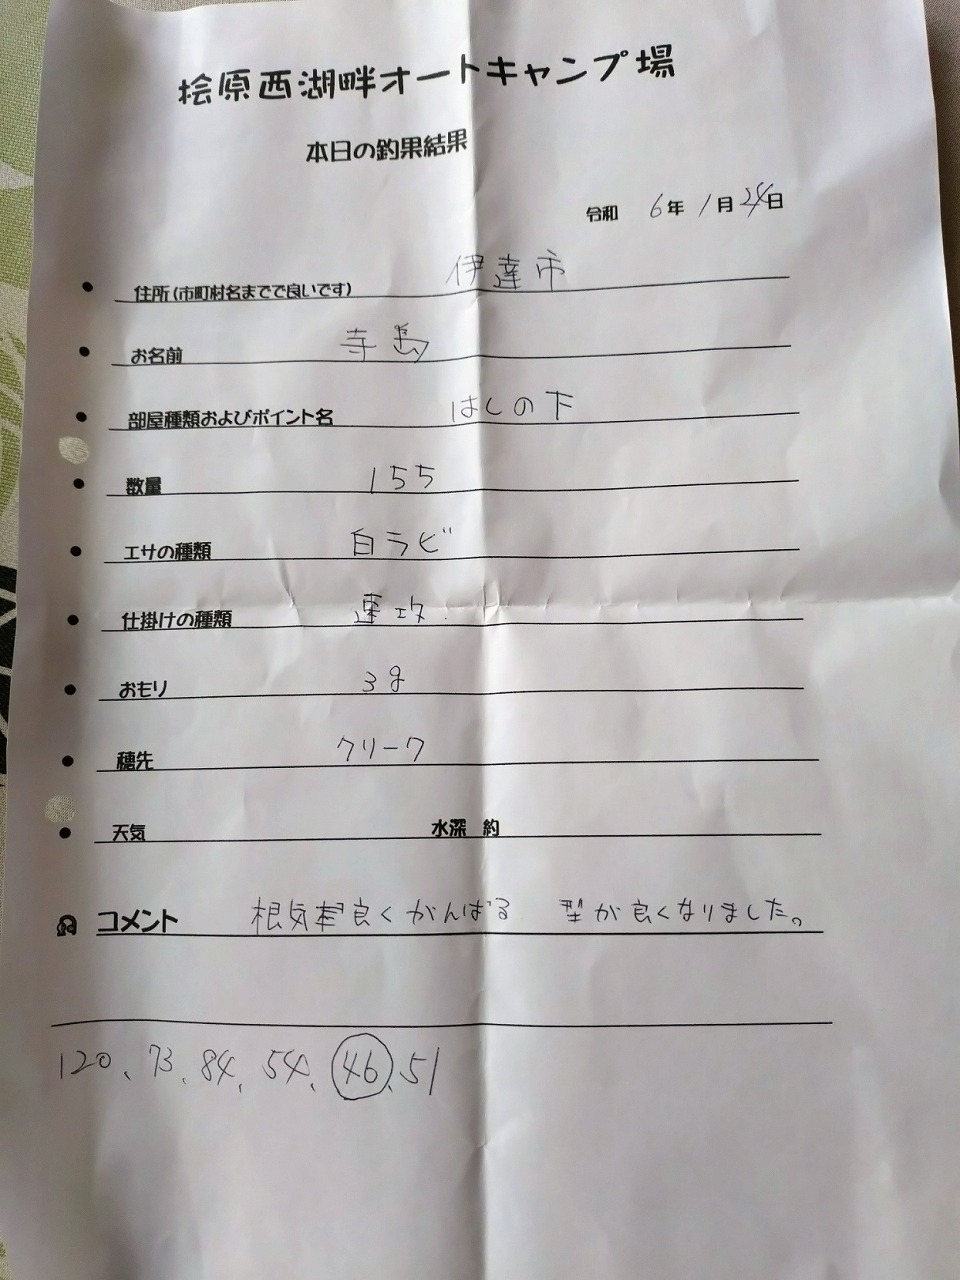 桧原西湖畔オートキャンプ場
本日の釣果結果
令和 6年 1月 24日
● 住所(市町村名までで良いです) 伊達市
● お名前 寺島
● 部屋種類およびポイント名 はしの下
● 数量 155
● エサの種類 白ラビ
● 仕掛けの種類 速攻.
● おもり 3g
● 穂先 クリーク
● 天気 水深 約
コメント 根気良くがんばる 型が良くなりました。
120、73、84、54、46、51